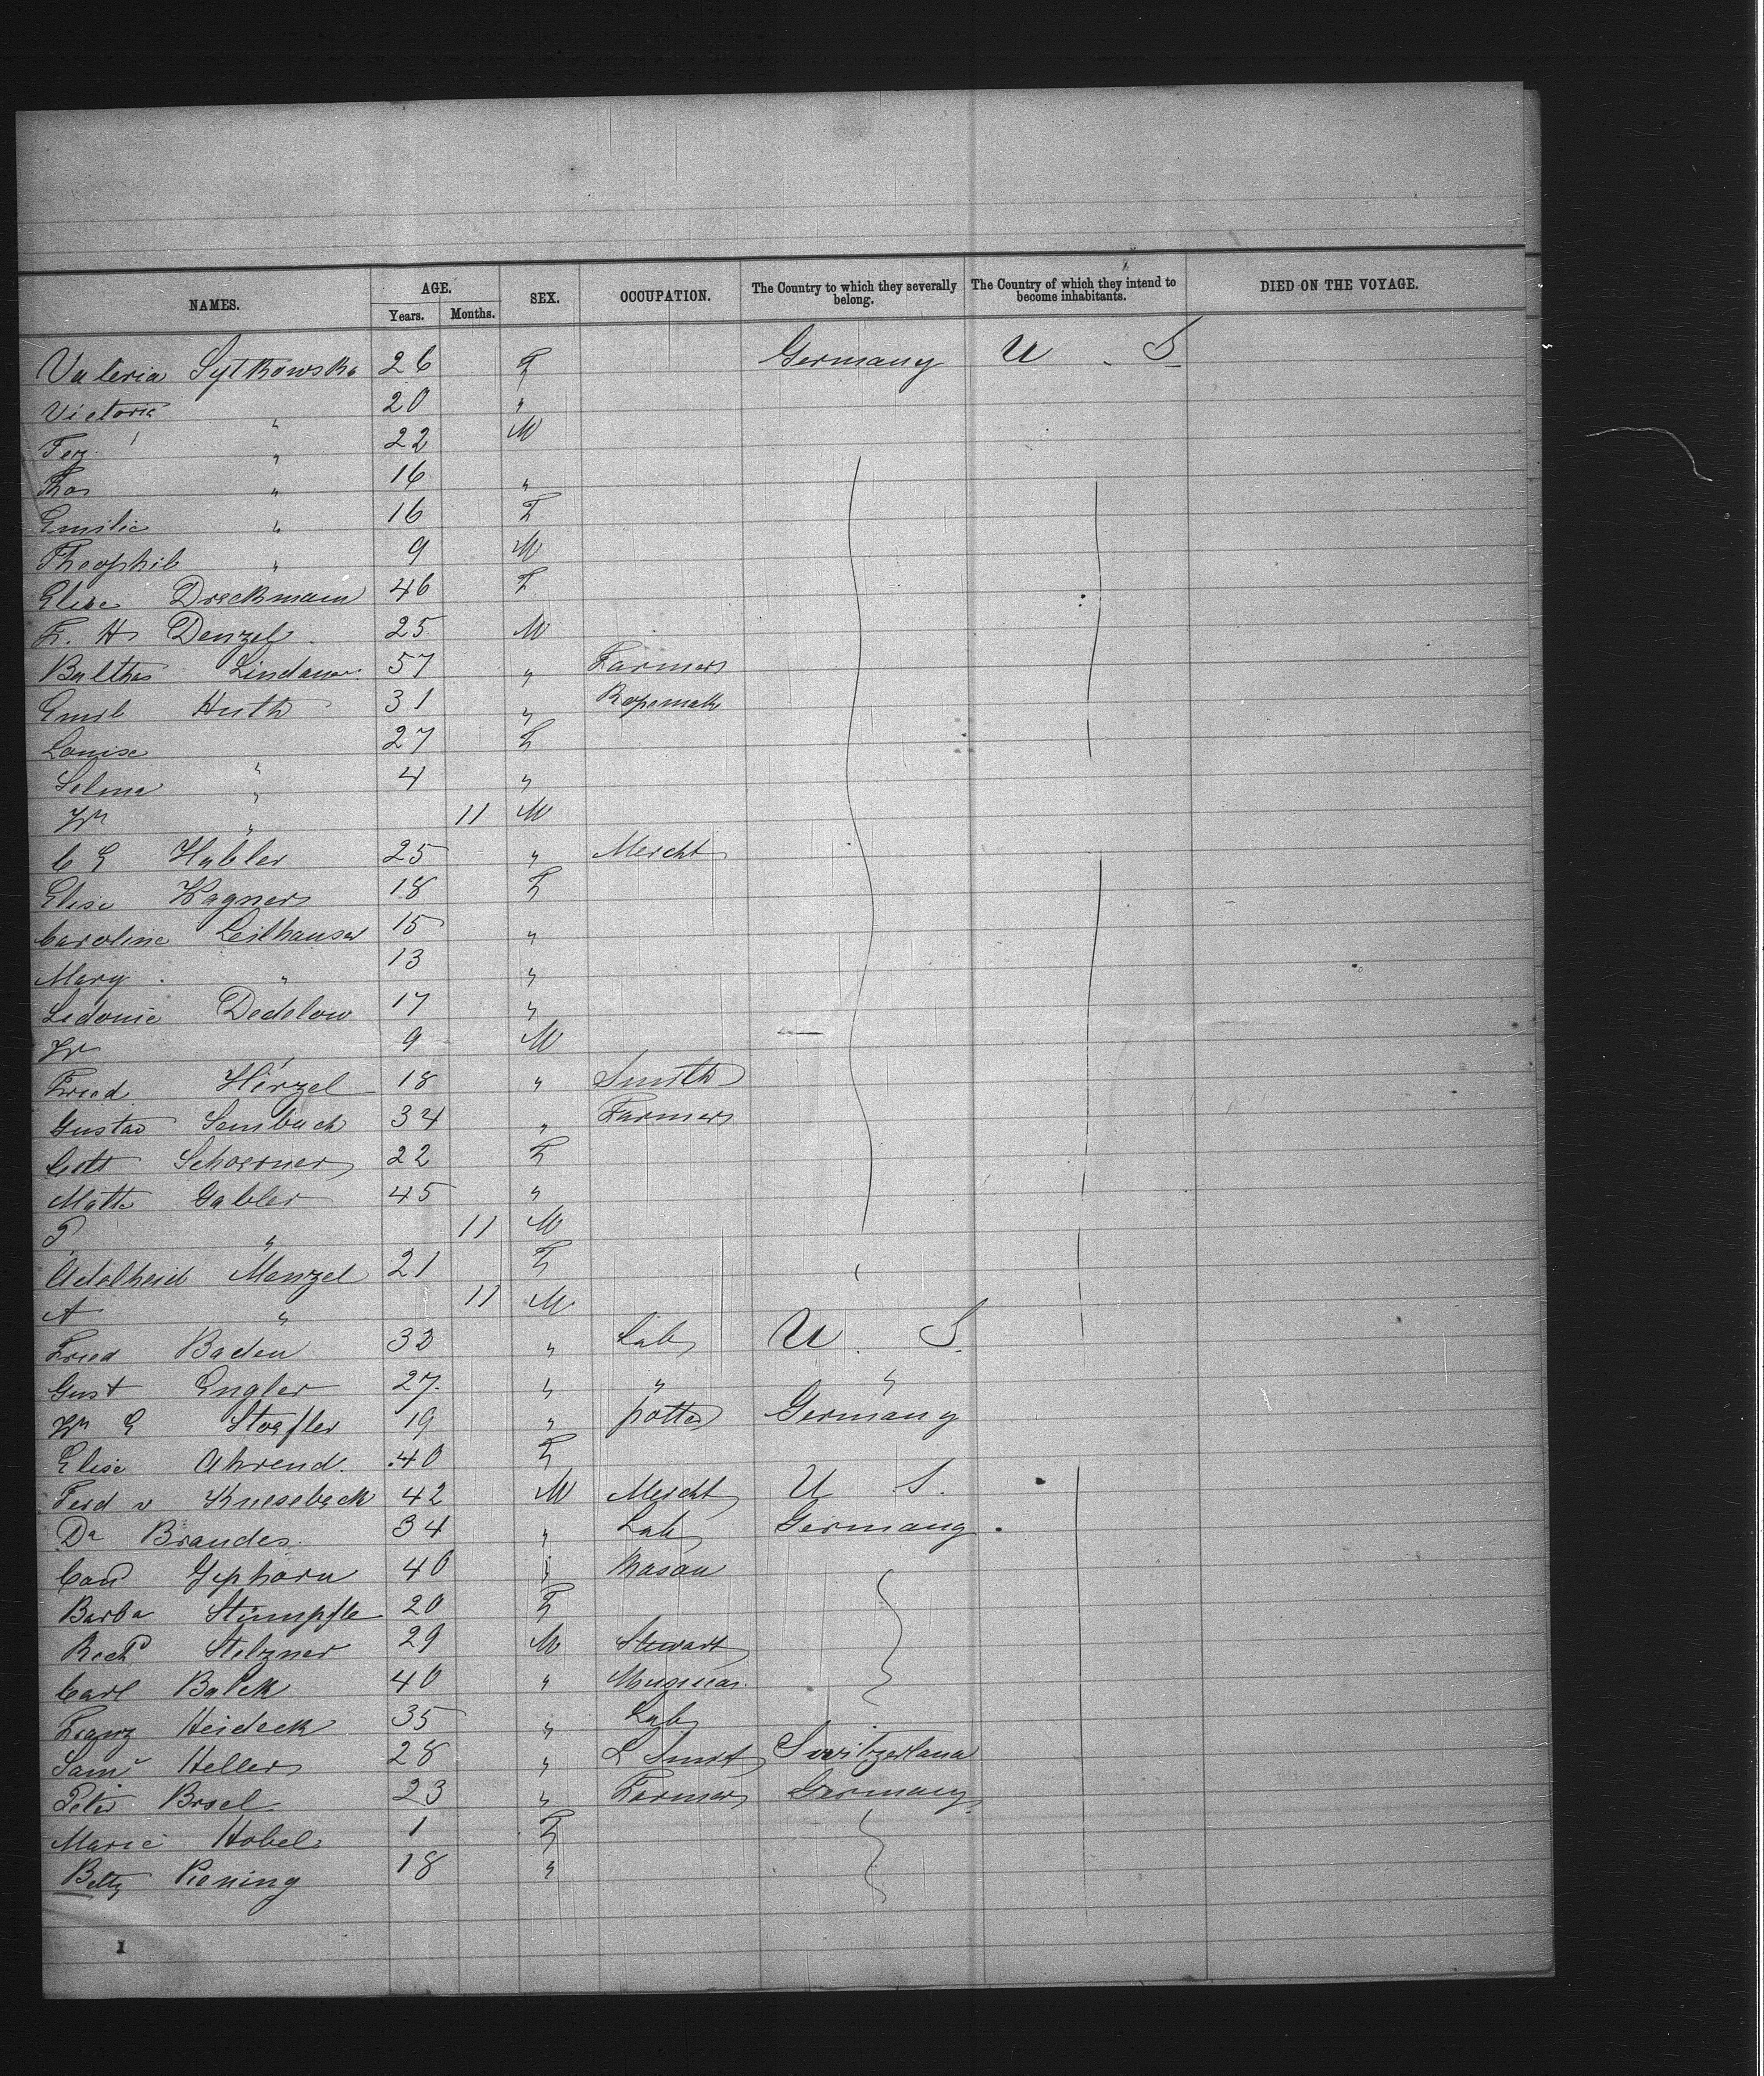 NAMES. AGE. Years. Months. SEX. OCCUPATION. The Country to which they severally belong. The Country of which they intend to become inhabitants. DIED ON THE VOYAGE.
Valeria Sytkowska 26 F Germany U. S.
Victoria " 20 "
" 22 M
Thos " 16 "
Emilie " 16 F
Theophil " 9 M
Elise Dreckmann 46 F
F. H. Denzel 25 M
Balthas Lindauer 57 " Farmer
Emil Huth 31 " Ropemak
Louise " 27 F
Selma " 4 "
Wm " 11 M
C E Habler 25 " Mercht
Elise Wagner 18 F
Caroline Leilhauser 15 "
Mary " 13 "
Sedonie Dedelow 17 "
Wm " 9 M
Fried Hirzel 18 " Smith
Gustav Sembach 34 " Farmer
Schoerner 22 F
Matta Gabler 45 "
" 11 M
Adelheid Menzel 21 F
A " 11 M
Fried Baden 32 " Lab U. S.
Gust Engler 27 " " "
Wm E Stoefler 19 " potter Germany
Elise Ahrend 40 F
Ferd v Kneseback 42 M Mercht U S.
Da Brandes 34 " Lab Germany
Gephorn 40 " Mason
Barba Stumpfle 20 F
Richd Stelzner 29 M Stewart
Carl Balck 40 " Musician
Franz Heideck 35 " Lab
Saml Heller 28 " L Smith Switzerland
Peter Brsel 23 " Farmer Germany
Marie Hobel 1 F
Betty Piening 18 "
1